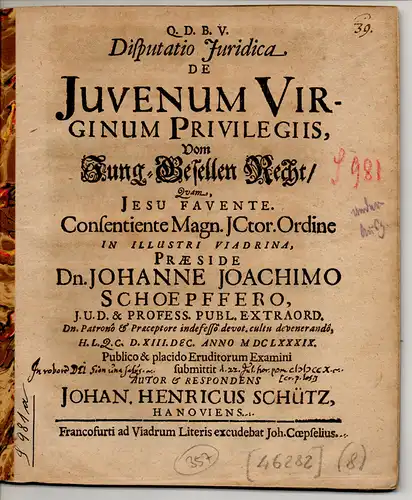 39.
Q. D. B. V.
Disputatio Juridica
DE
JUVENUM VIR-
GINUM PRIVILEGIIS,
Vom
Jung-Gesellen Recht/
Qvam,
JESU FAVENTE.
Consentiente Magn. JCtor. Ordine
IN ILLUSTRI VIADRINA,
PRÆSIDE
Dn. JOHANNE JOACHIMO
SCHOEPFFERO,
J.U.D. & PROFESS. PUBL. EXTRAORD.
Dn. Patronô & Præceptore indefessô devot. cultu devenerandô,
H. L. Q. C. D. XIII. DEC. ANNO MDCLXXXIX.
Publico & placido Eruditorum Examini
submittit
AUTOR & RESPONDENS
JOHAN. HENRICUS SCHÜTZ,
HANOVIENS.
Francofurti ad Viadrum Literis excudebat Joh. Cœpselius.
S 981
S 981a
357
[46282]
(8)